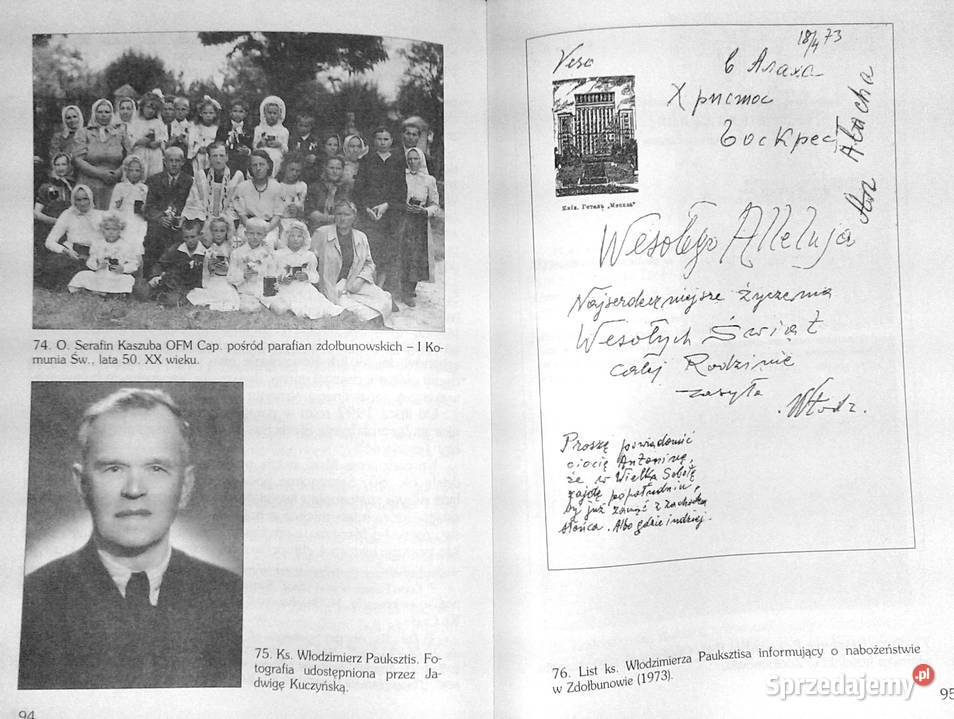 74. O. Serafin Kaszuba OFM Cap. pośród parafian zdołbunowskich – I Ko-
munia Św., lata 50. XX wieku.
75. Ks. Włodzimierz Pauksztis. Fo-
tografia udostępniona przez Ja-
dwigę Kuczyńską.
94
18/4 73
Христос
Воскрес
Wesołego Alleluja
Najserdeczniejsze życzenia
Wesołych Świąt
całej Rodzinie
zasyła
Włodz.
Proszę powiadomić
ciocię Antoninę,
że w Wielką Sobotę
zajdę popołudniu,
by już zacząć z zachodem
słońca. Albo gdzie indziej.
76. List ks. Włodzimierza Pauksztisa informujący o nabożeństwie
w Zdołbunowie (1973).
95
Sprzedajemy.pl